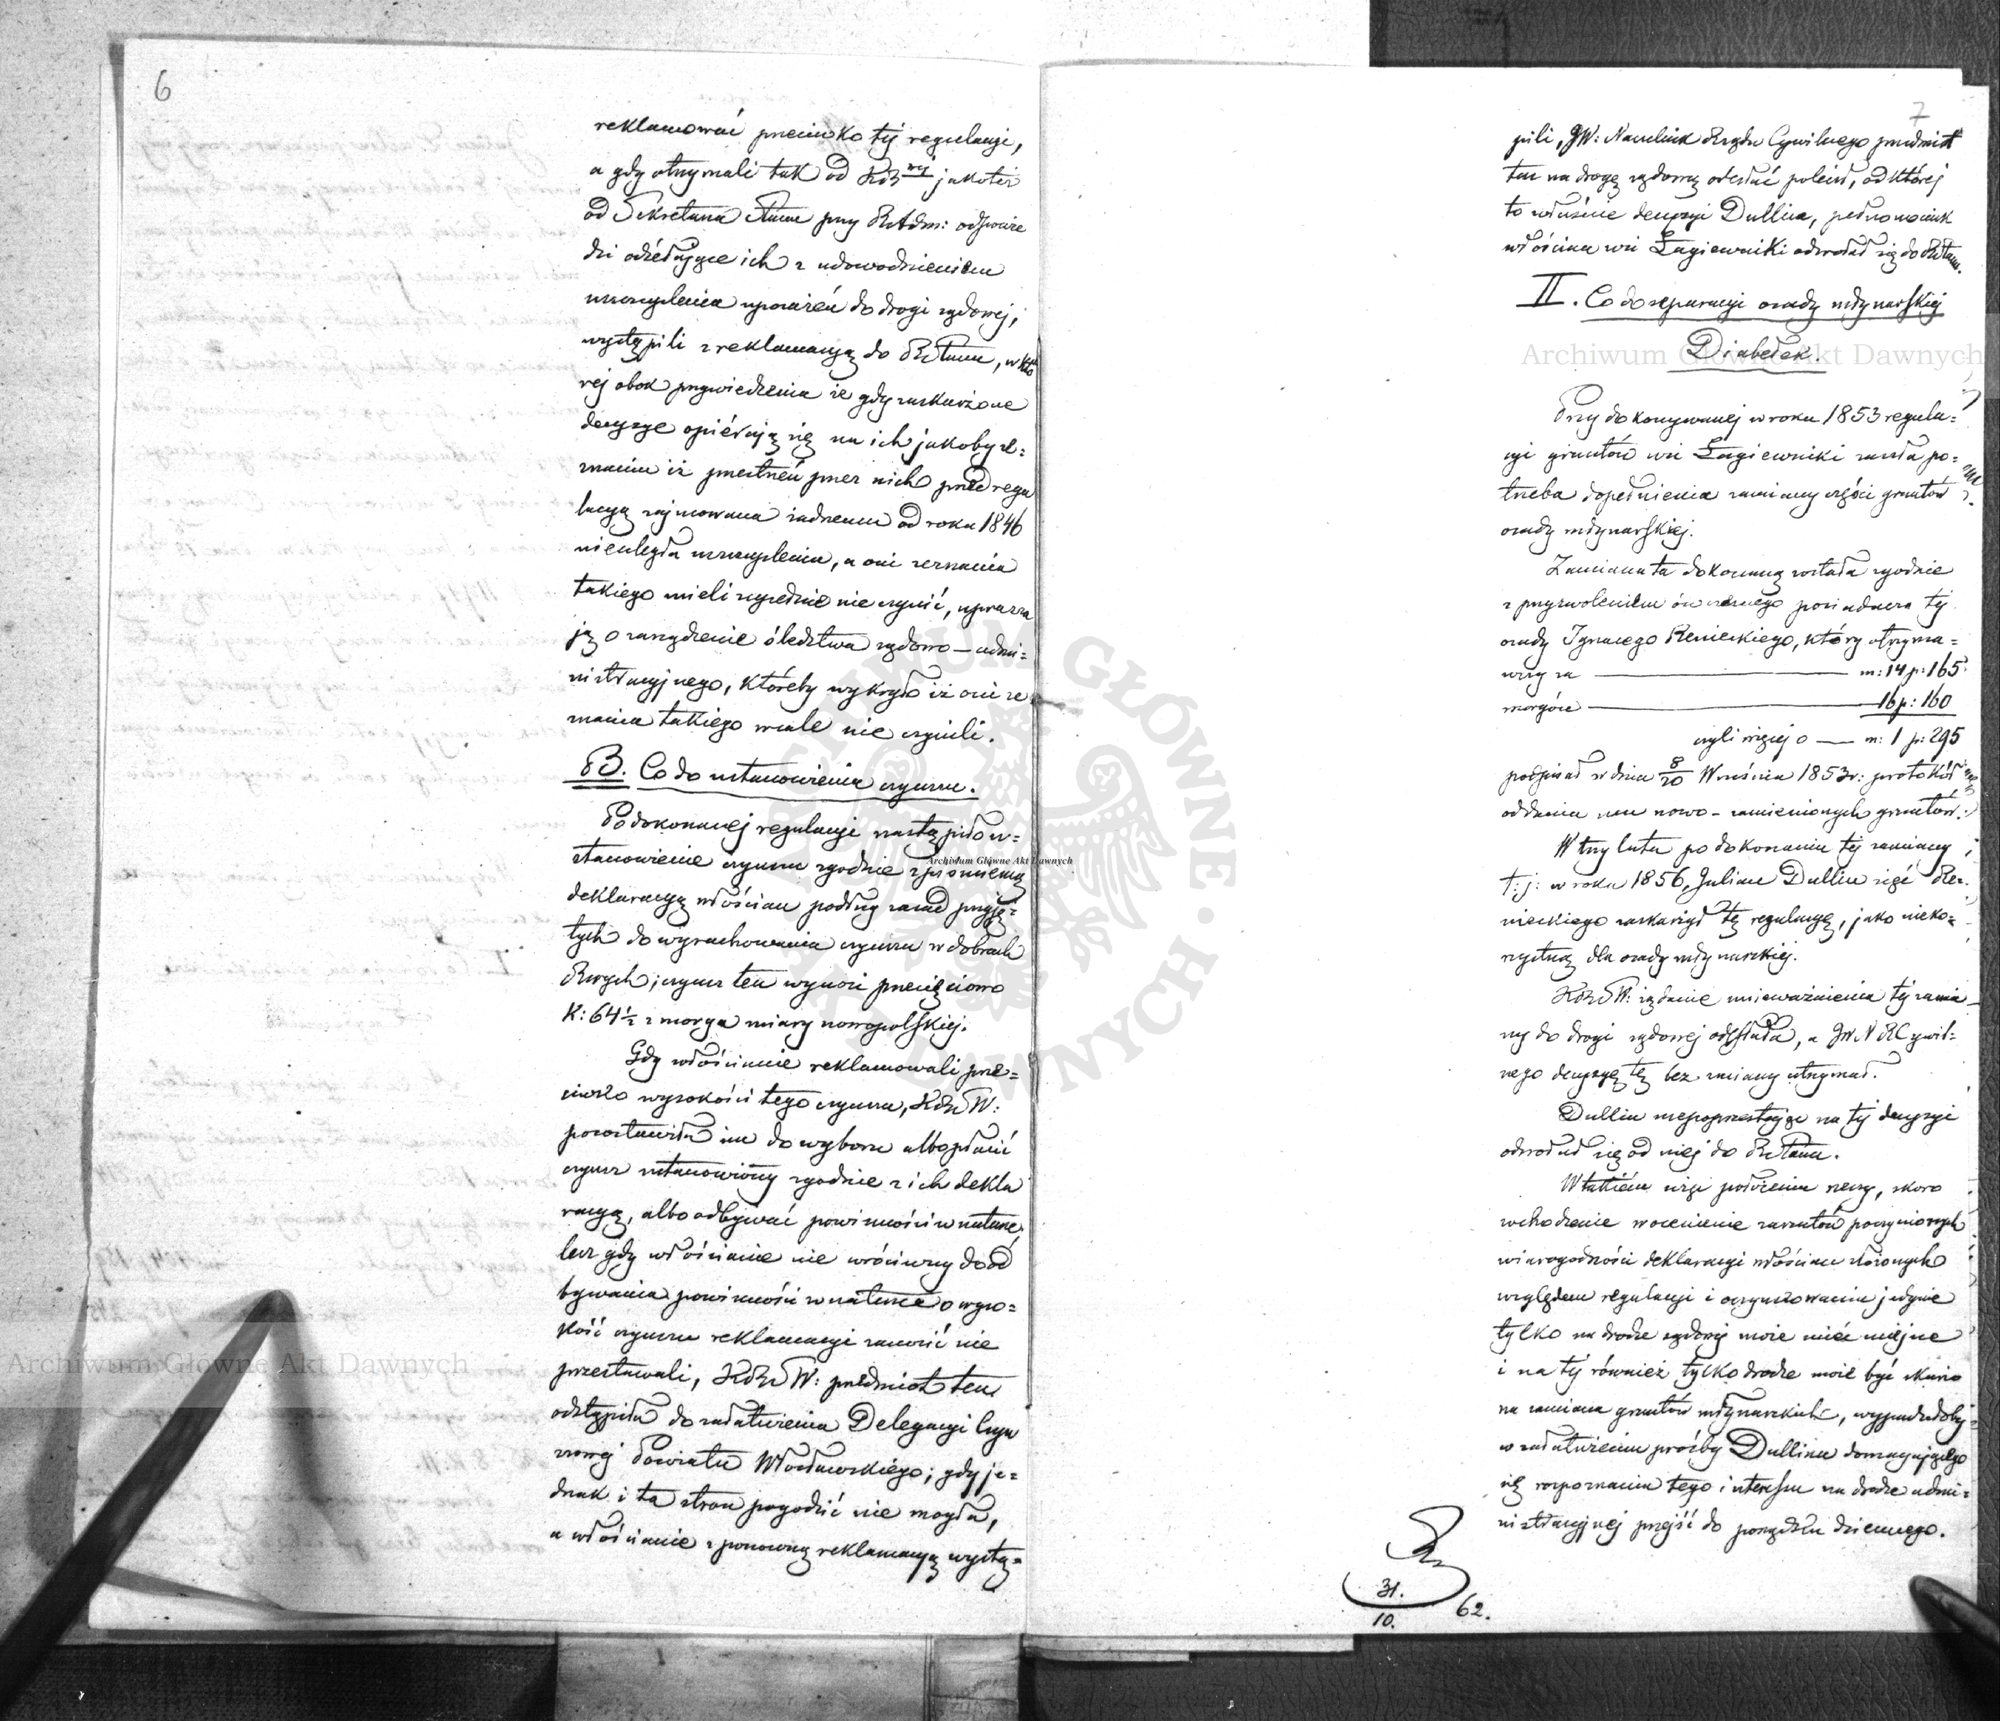 6
reklamować przeciwko téj regulacyi,
a gdy otrzymali tak od KRz jakoteż
od Sekretarza Stanu przy RAdm: odpowie
dzi odsełające ich z udowodnieniem
uszczuplenia uposażeń do drogi sądowej,
wystąpili z reklamacyą do RStanu, w któ
rej obok przywiedzenia że gdy zaskarżone
decyzye opiérają się na ich jakoby ze=
znaniu iż przestrzeń przez nich przed regu
lacyą zajmowana żadnemu od roku 1846
nieuległa uszczupleniu, a oni zeznania
takiego mieli zupełnie nie czynić, uprasza
ją o zarządzenie śledztwa sądowo – admi=
nistracyjnego, któreby wykryło iż oni ze
znania takiego wcale nie czynili.
B. Co do ustanowienia czynszu.
Po dokonanej regulacyi nastąpiło u=
stanowienie czynszu zgodnie z piśmienną
deklaracyą włościan podług zasad przyję=
tych do wyrachowania czynszu w dobrach
Rwych; czynsz ten wynosi przecięciowo
K: 64½ z morga miary nowopolskiej.
Gdy włościanie reklamowali prze=
ciwko wysokości tego czynszu, KRz W:
pozostawiła im do wyboru albo płacić
czynsz ustanowiony zgodnie z ich dekla
racyą, albo odbywać powinności w naturze,
lecz gdy włościanie nie wróciwszy do od
bywania powinności w naturze o wyso=
kość czynszu reklamacyi zanosić nie
przestawali, KRz W: przedmiot ten
odstąpiła do załatwienia Delegacyi Czyn
szowej Powiatu Włocławskiego; gdy je=
dnak i ta stron pogodzić nie mogła,
a włościanie z ponowną reklamacyą wystą=
7
pili, JW: Naczelnik Rządu Cywilnego przedmiot
ten na drogę sądową odesłać polecił, od której
to właśnie decyzyi Dullin, pełnomocnik
włościan wsi Łagiewniki odwołał się do RStanu.
II. Co do separacyi osady młynarskiej
Diabełek.
Przy dokonywanej w roku 1853 regula=
cyi gruntów wsi Łagiewniki zaszła po=
trzeba dopełnienia zamiany części gruntów
osady młynarskiej.
Zamiana ta dokonaną została zgodnie
z przyzwoleniem ówczesnego posiadacza téj
osady Ignacego Renieckiego, który otrzyma=
wszy za m: 14 p: 165
morgów 16 p: 160
czyli więcej o m: 1 p: 295
podpisał w dniu 8/20 Września 1853 r: protokół
oddania mu nowo – zamienionych gruntów.
W trzy lata po dokonaniu téj zamiany
t: j: w roku 1856, Julian Dullin zięć Re=
nieckiego zaskarżył tę regulacyę, jako nieko=
rzystną dla osady młynarskiej.
KRz W: żądanie unieważnienia téj zamia
ny do drogi sądowej odesłała, a JW. NRCywil=
nego decyzyę tę bez zmiany utrzymał.
Dullin niepoprzestając na téj decyzyi
odwołał się od niej do RStanu.
W takiém więc położeniu rzeczy, skoro
wchodzenie w ocenienie zarzutów poczynionych
wiarogodności deklaracyi włościan złożonych
względem regulacyi i oczynszowania jedynie
tylko na drodze sądowej może mieć miejsce
i na téj również tylko drodze może być skarżo
na zamiana gruntów młynarskich, wypadałoby
w załatwieniu prośby Dullina domagającego
się rozpoznania tego interesu na drodze admi=
nistracyjnej przejść do porządku dziennego.
31.
10. 62.
Archiwum Główne Akt Dawnych
Archiwum Główne Akt Dawnych
Archiwum Główne Akt Dawnych
ARCHIWUM GŁÓWNE AKT DAWNYCH